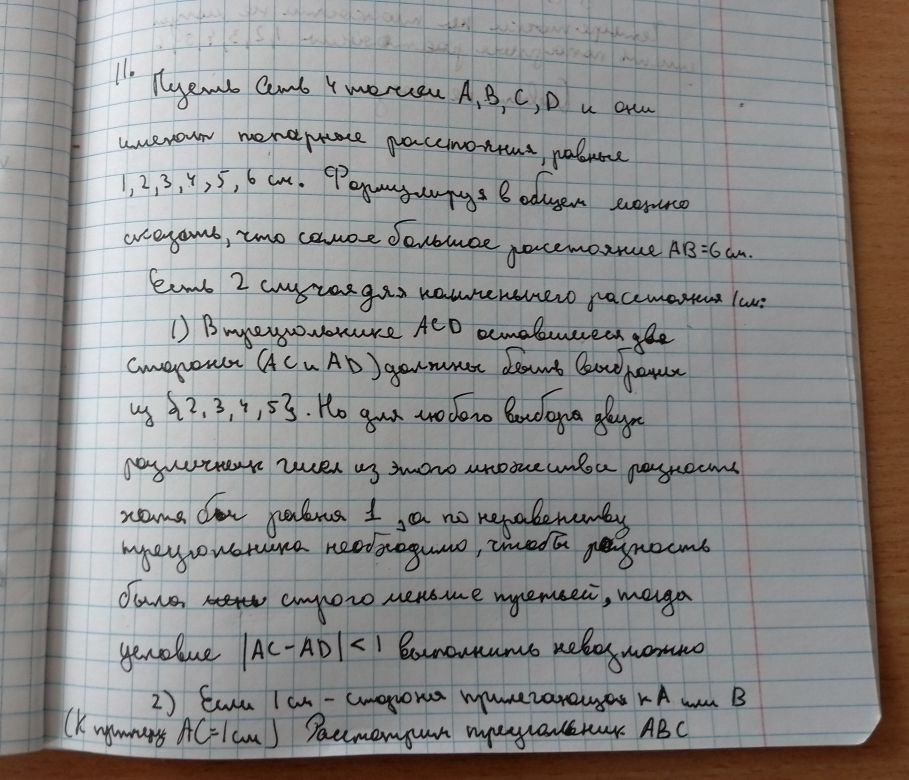 11. Пусть есть 4 точки A, B, C, D и они
имеют попарные расстояния, равные
1, 2, 3, 4, 5, 6 см. Формулируя в общем можно
сказать, что самое большое расстояние AB=6 см.
Есть 2 случая для наименьшего расстояния 1см:
1) В треугольнике ACD оставшиеся две
стороны (AC и AD) должны быть выбраны
из {2, 3, 4, 5}. Но для любого выбора двух
различных чисел из этого множества разность
хотя бы равна 1, а по неравенству
треугольника необходимо, чтобы разность
была строго меньше третьей, тогда
условие |AC-AD|<1 выполнить невозможно
2) Если 1 см - сторона прилегающая к A или B
(К примеру AC=1см) Рассмотрим треугольник ABC